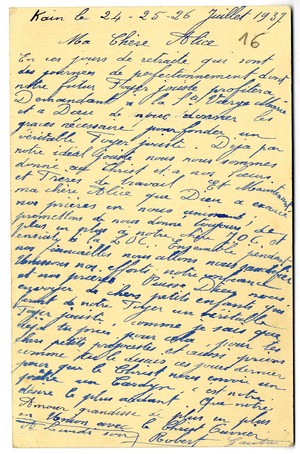 Kain le 24-25-26 Juillet 1937
16
Ma Chère Alice
En ces jours de retraite qui sont
des journées de perfectionnement dont
notre futur Foyer jociste profitera
Demandant à la Ste Vierge Marie
et a Dieu de nous donner les
graces nécessaire pour fonder un
véritable Foyer jociste. Déja par
notre idéal Jociste nous nous sommes
donné au Christ et a nos Sœurs
et Frères de travail. et Maintenant
ma chère Alice que Dieu a exaucé
nos prières en nous unissant,
promettons de nous donner toujours, de
plus en plus à notre chère J.O.C. et
ensuite à la L.O.C. Ensemble pendant
nos fiançailles nous allons nous
nos efforts, notre confiance
et nos prières. Puisse Dieu nous
envoyer de chers petits enfants qui
feront de notre Foyer un véritable
Foyer jociste, comme je sais que
déjà tu pries pour eux, pour les
chers petits prêtres et aussi prions
comme
pour que le Christ nous envoi un
jociste un Cardyn c'est notre
désire le plus ardent. Que notre
Amour grandisse de plus en plus
en Union avec le Christ Ouvrier
A Lundi soir Robert